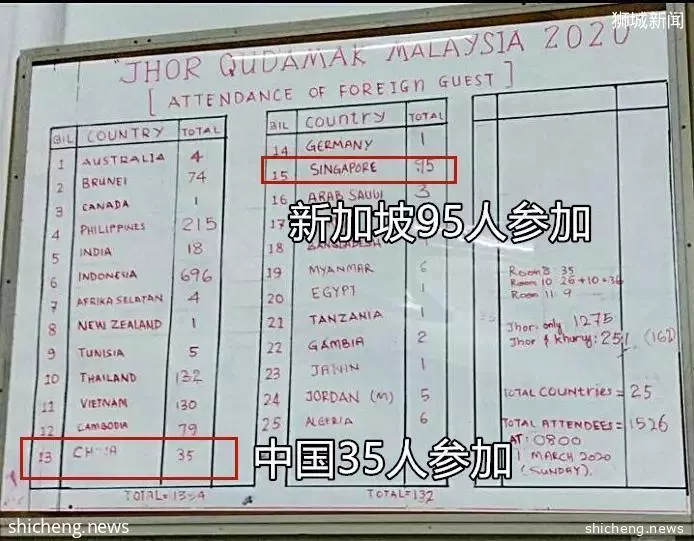 狮城新闻
JHOR QUDAMAK MALAYSIA 2020
[ ATTENDANCE OF FOREIGN GUEST ]
BIL COUNTRY TOTAL
1 AUSTRALIA 4
2 BRUNEI 74
3 CANADA 1
4 PHILIPPINES 215
5 INDIA 18
6 INDONESIA 696
7 AFRIKA SELATAN 4
8 NEW ZEALAND 1
9 TUNISIA 5
10 THAILAND 132
11 VIETNAM 130
12 CAMBODIA 79
13 35
中国35人参加
BIL COUNTRY TOTAL
14 GERMANY 1
15 SINGAPORE 95
16 ARAB SAUDI 3
新加坡95人参加
17
18 BANGLADESH
19 MYANMAR 6
20 EGYPT 1
21 TANZANIA 1
22 GAMBIA 2
23 1
24 JORDAN (M) 5
25 ALGERIA 6
TOTAL=132
Room 8 35
Room 10 26+10=36
Room 11 9
Jhor only 1275
Jhor & khuruj: 251 (162)
TOTAL COUNTRIES = 25
TOTAL ATTENDEES = 1526
AT: 0800
1 MARCH 2020
(SUNDAY).
shicheng.news
shicheng.news